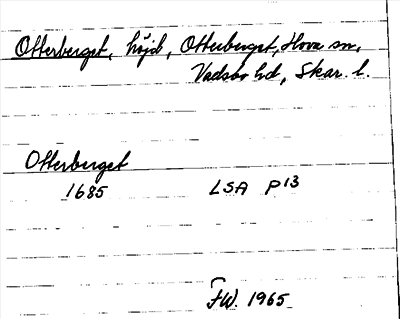 Otterberget, höjd, Otterberget, Hova sn,
Vadsbo hd, Skar. l.
Otterberget
1685 LSA P13
FW. 1965